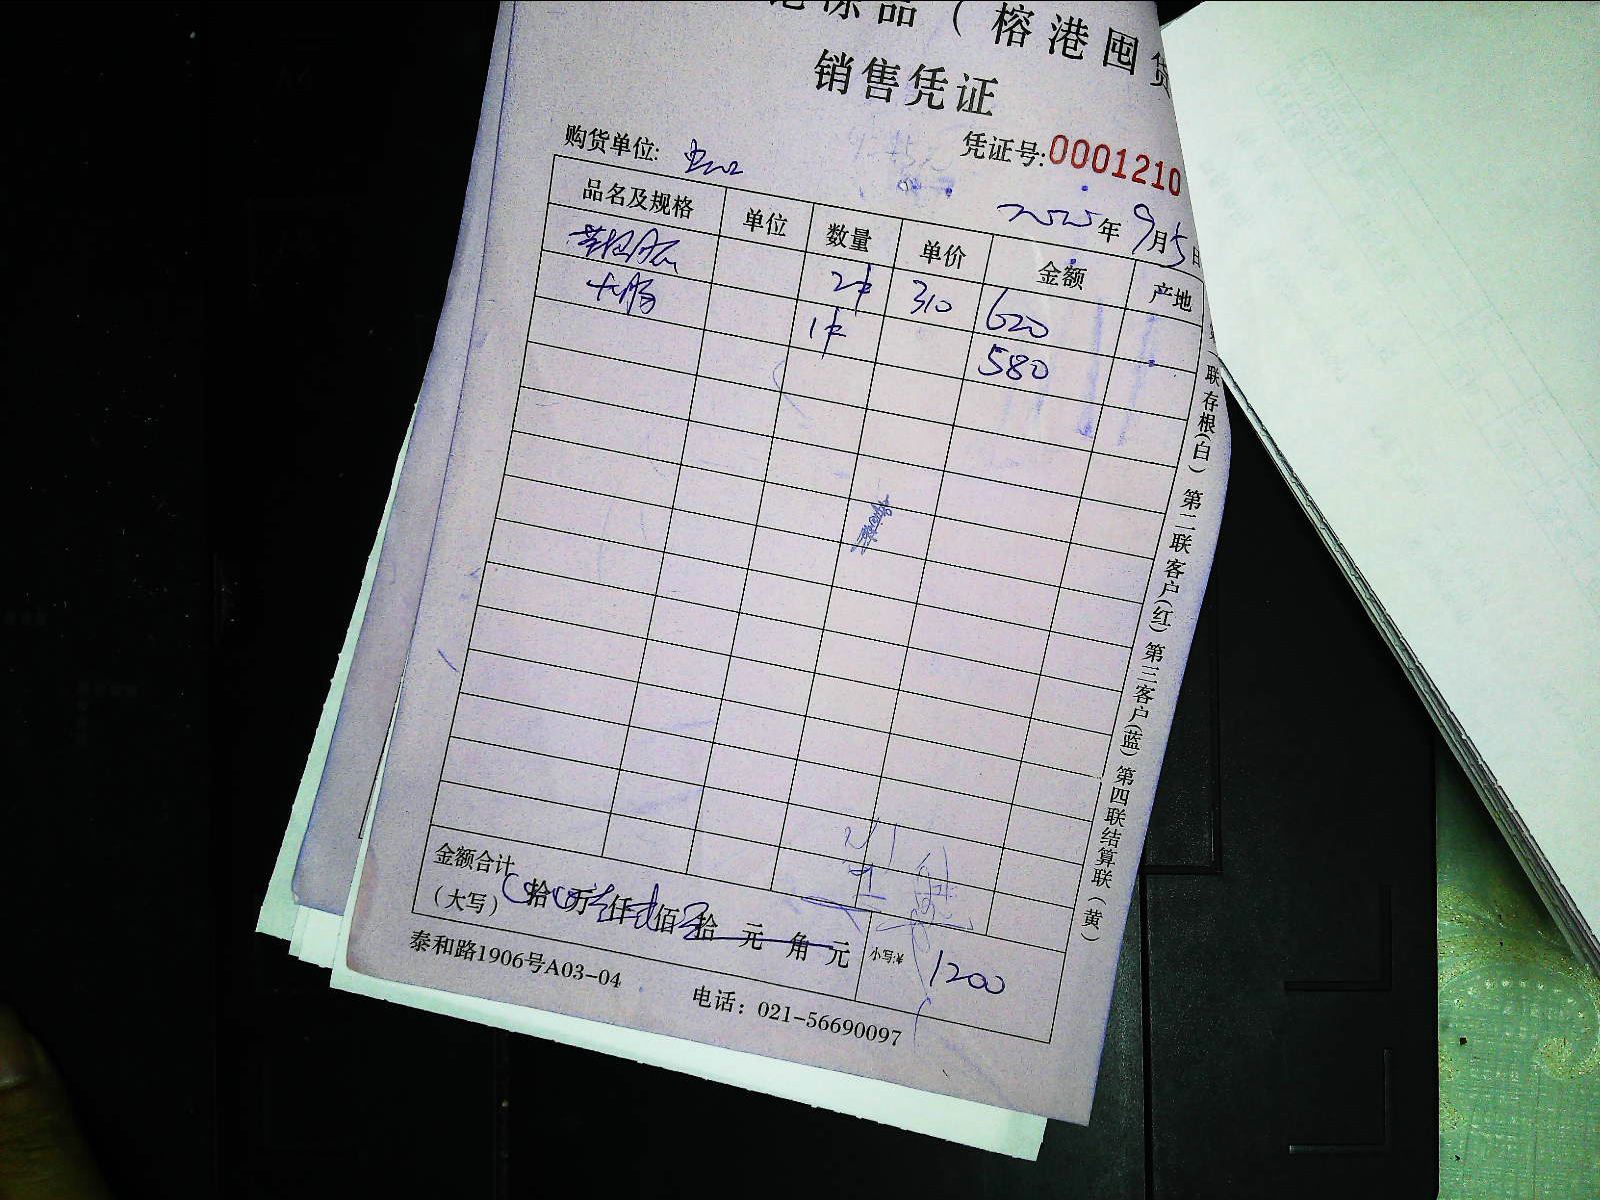 冻品（榕港囤货
销售凭证
购货单位:
凭证号:0001210
2025年9月5日
品名及规格 单位 数量 单价 金额 产地
2件 310 620
大肠 1件 580
金额合计
（大写） 拾 万 仟 佰 拾 元 角 元 小写:¥ 1200
泰和路1906号A03-04 电话：021-56690097
联存根(白) 第二联客户(红) 第三客户(蓝) 第四联结算联(黄)